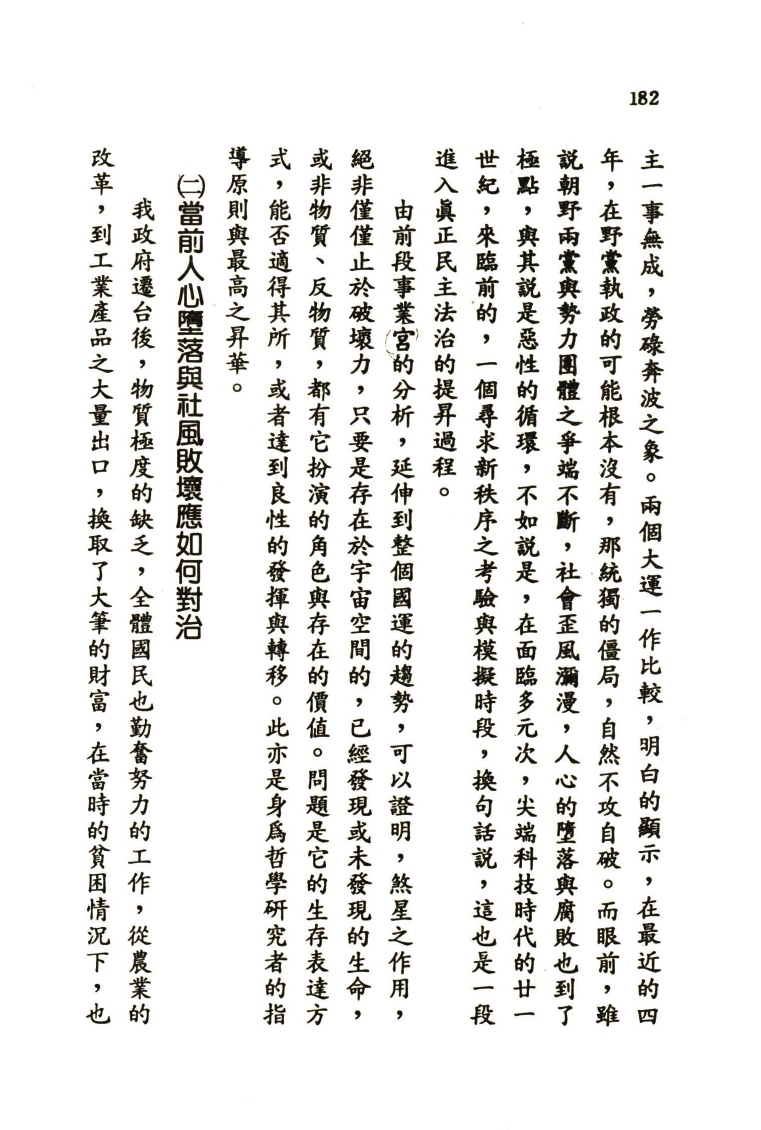 182
主一事無成，勞碌奔波之象。兩個大運一作比較，明白的顯示，在最近的四
年，在野黨執政的可能根本沒有，那統獨的僵局，自然不攻自破。而眼前，雖
說朝野兩黨與勢力團體之爭端不斷，社會歪風瀰漫，人心的墮落與腐敗也到了
極點，與其說是惡性的循環，不如說是，在面臨多元次，尖端科技時代的廿一
世紀，來臨前的，一個尋求新秩序之考驗與模擬時段，換句話說，這也是一段
進入眞正民主法治的提昇過程。
由前段事業宮的分析，延伸到整個國運的趨勢，可以證明，煞星之作用，
絕非僅僅止於破壞力，只要是存在於宇宙空間的，已經發現或未發現的生命，
或非物質、反物質，都有它扮演的角色與存在的價值。問題是它的生存表達方
式，能否適得其所，或者達到良性的發揮與轉移。此亦是身爲哲學研究者的指
導原則與最高之昇華。
㈡當前人心墮落與社風敗壞應如何對治
我政府遷台後，物質極度的缺乏，全體國民也勤奮努力的工作，從農業的
改革，到工業產品之大量出口，換取了大筆的財富，在當時的貧困情況下，也